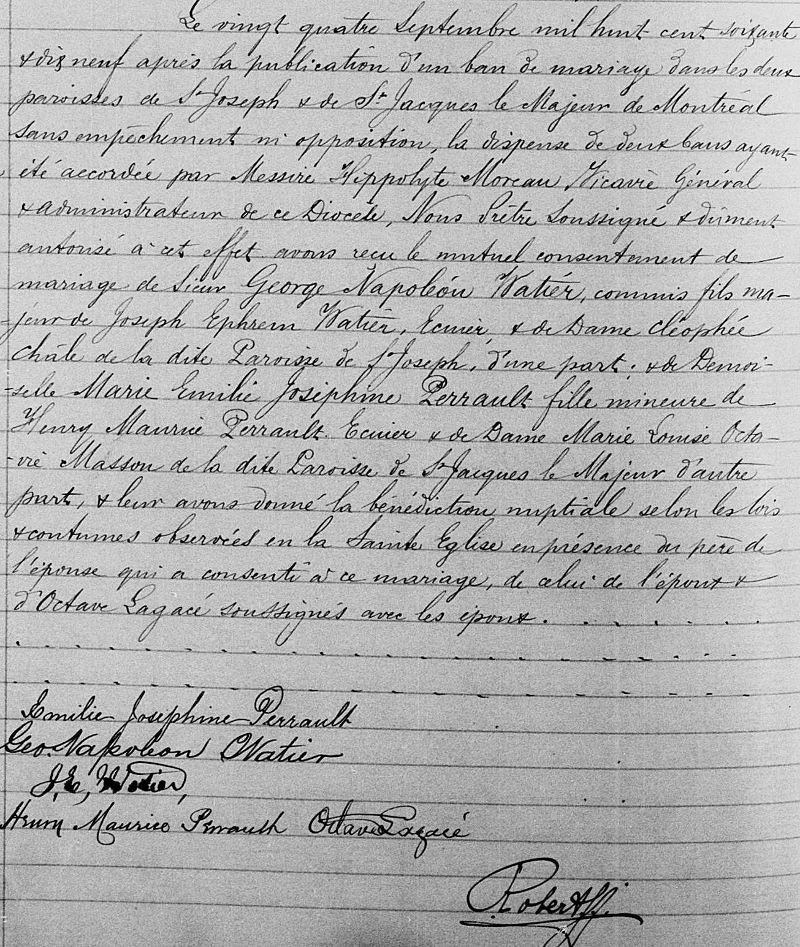 Le vingt quatre Septembre mil huit cent soixante
& dix neuf après la publication d'un ban de mariage dans les deux
paroisses de St Joseph & de St Jacques le Majeur de Montréal
sans empêchement ni opposition, la dispense de deux bans ayant
été accordée par Messire Hippolyte Moreau Vicaire Général
& administrateur de ce Diocèse, Nous Prêtre soussigné & dûment
autorisé à cet effet avons reçu le mutuel consentement de
mariage de Sieur George Napoléon Watier, commis fils ma-
-jeur de Joseph Ephrem Watier, Ecuier, & de Dame Cléophée
Châle de la dite Paroisse de St Joseph, d'une part; & de Demoi-
-selle Marie Emilie Joséphine Perrault fille mineure de
Henry Maurice Perrault Ecuier & de Dame Marie Louise Octa-
-vie Masson de la dite Paroisse de St Jacques le Majeur d'autre
part, & leur avons donné la bénédiction nuptiale selon les lois
& coutumes observées en la Sainte Eglise en présence du père de
l'épouse qui a consenti à ce mariage, de celui de l'époux &
d'Octave Lagacé soussignés avec les époux.
Emilie Joséphine Perrault
Geo. Napoleon Watier
J. E. Watier,
Henry Maurice Perrault Octave Lagacé
Robert